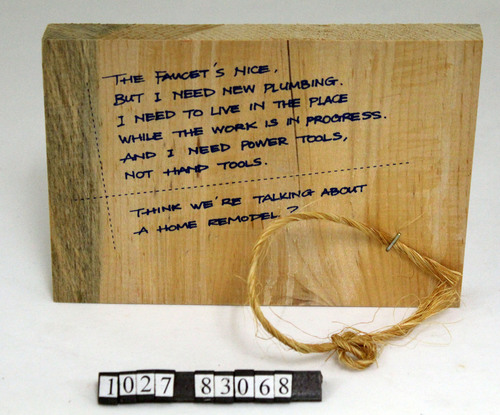 THE FAUCET'S NICE,
BUT I NEED NEW PLUMBING.
I NEED TO LIVE IN THE PLACE
WHILE THE WORK IS IN PROGRESS.
AND I NEED POWER TOOLS,
NOT HAND TOOLS.
THINK WE'RE TALKING ABOUT
A HOME REMODEL?
1027 83068